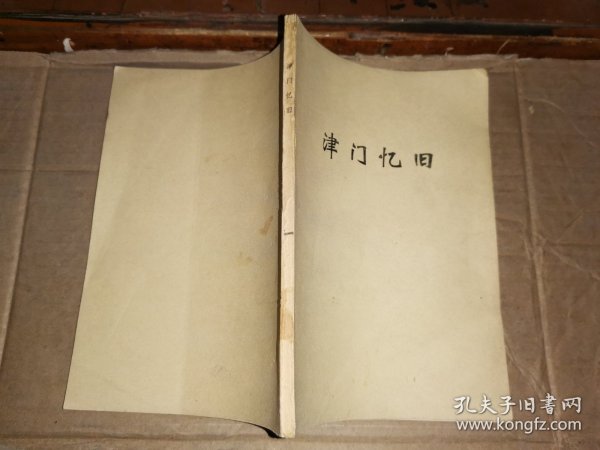 津门忆旧
津门忆旧
一
孔夫子旧書网
www.kongfz.com